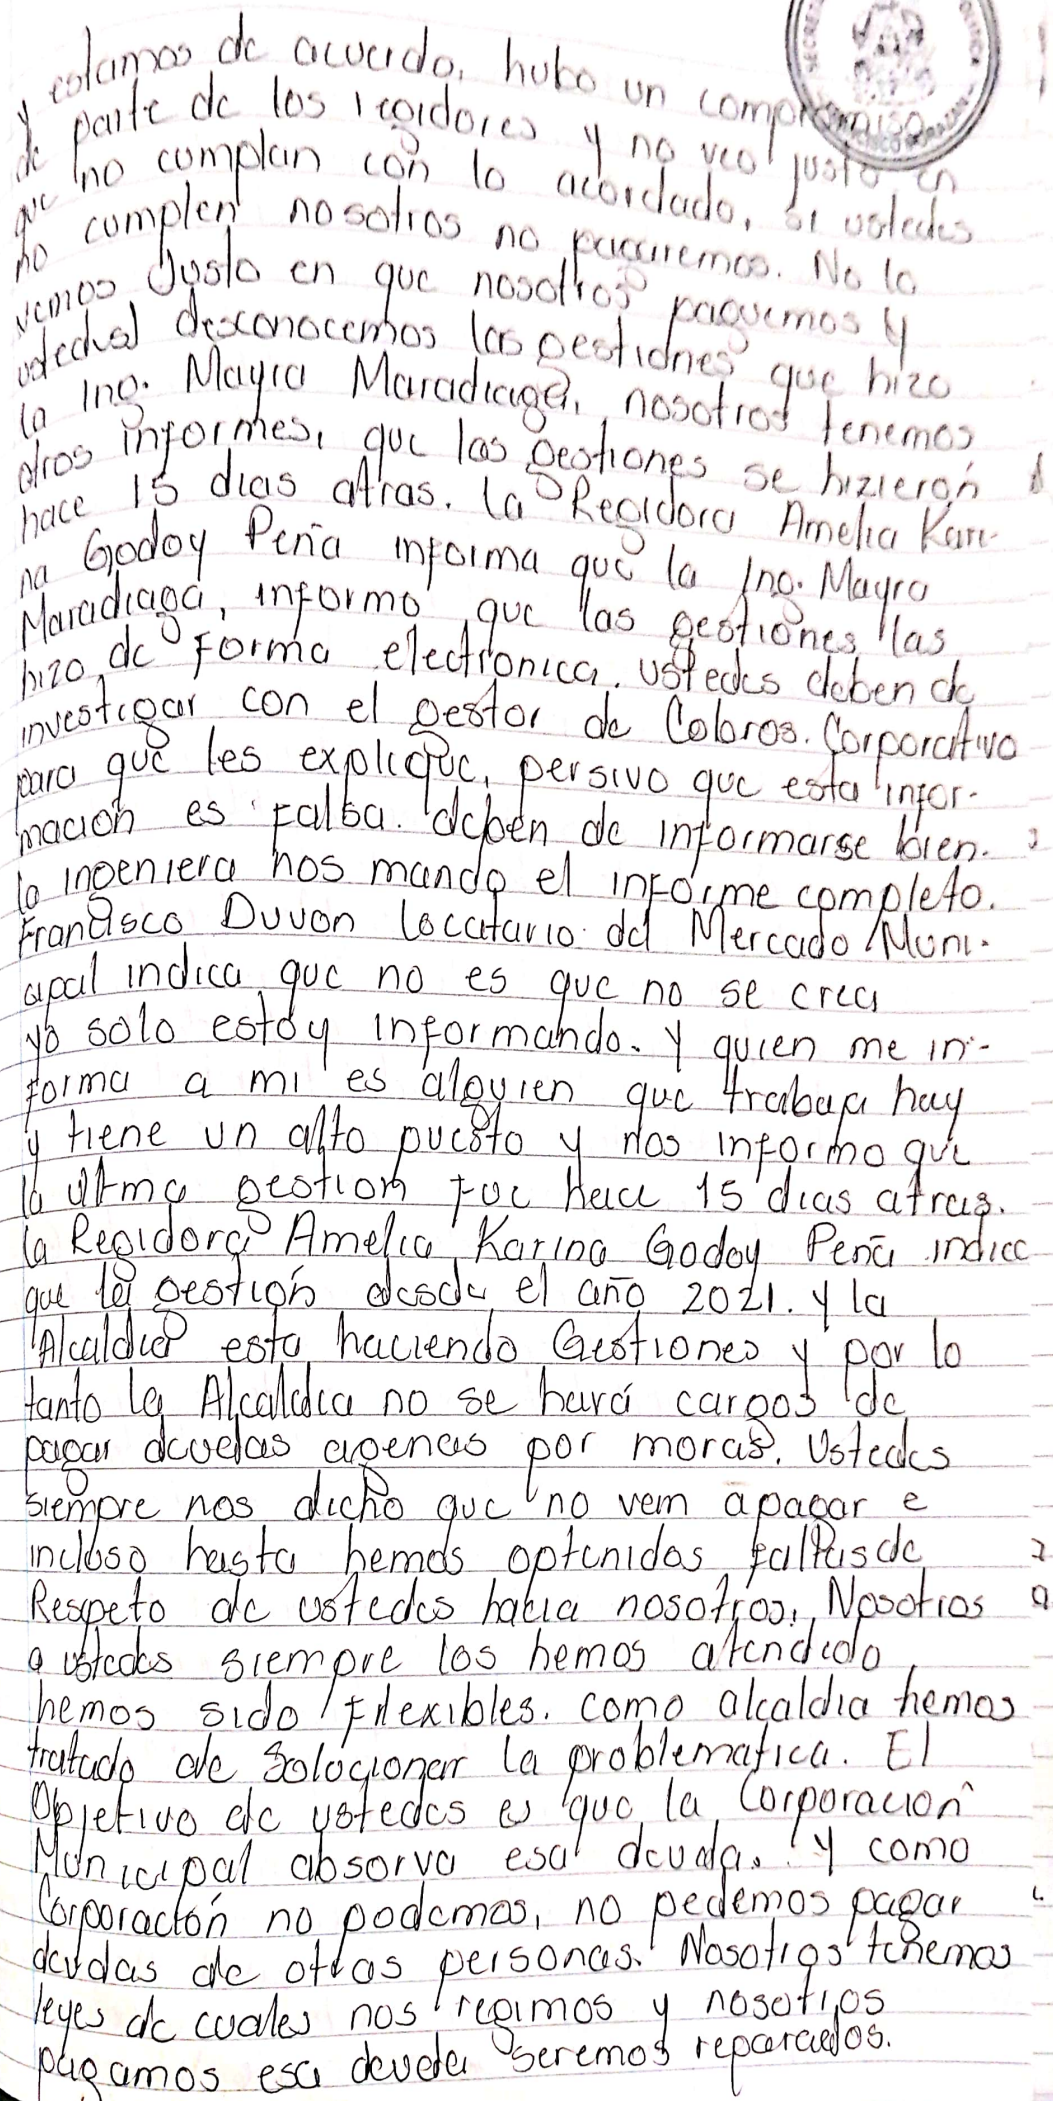 y estamos de acuerdo, hubo un compromiso
de parte de los regidores y no veo justo en
que no cumplan con lo acordado, si ustedes
no cumplen nosotros no pagaremos. No lo
vemos Justo en que nosotros paguemos y
ustedes desconocemos las gestiones que hizo
la Ing. Mayra Maradiaga, nosotros tenemos
otros informes, que las gestiones se hizierón
hace 15 dias atras. la Regidora Amelia Kari-
na Godoy Peña informa que la Ing. Mayra
Maradiaga, informo que las gestiones las
hizo de Forma electronica. ustedes deben de
investigar con el gestor de Cobros. Corporativo
para que les explique, persivo que esta infor-
mación es Falsa. deben de informarse bien.
la ingeniera nos mando el informe completo.
Francisco Duvon locatario del Mercado Muni-
cipal indica que no es que no se crea
yo solo estoy informando. Y quien me in-
forma a mi es alguien que trabaja hay
y tiene un alto puesto y nos informo que
la ultma gestion fue hace 15 dias atras.
la Regidora Amelia Karina Godoy Peña indica
que la gestión desde el año 2021. y la
Alcaldia esta haciendo Gestiones y por lo
tanto la Alcaldia no se hará cargos de
pagar deudas agenas por moras. Ustedes
siempre nos dicho que no vem apagar e
incluso hasta hemos optenidas faltas de
Respeto de ustedes hacia nosotros, Nosotros
a ustedes siempre los hemos atendido
hemos sido Flexibles. como alcaldia hemos
tratado de solocionar la problematica. El
Objetivo de ustedes es que la Corporación
Municipal absorva esa deuda. y como
Corporación no podemos, no pedemos pagar
deudas de otras personas. Nosotros tenemos
leyes de cuales nos regimos y nosotros
pagamos esa deuda seremos reparados.